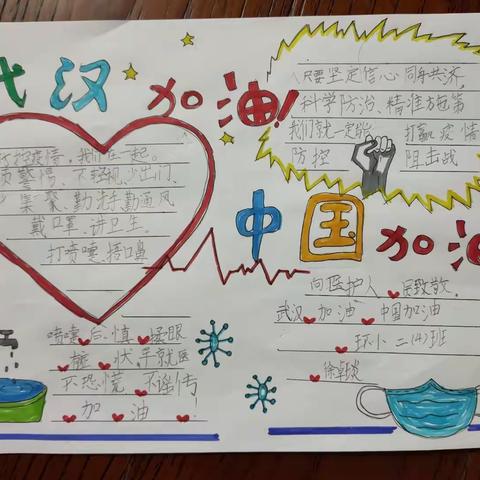 武汉 加油!
只要坚定信心 同舟共济,
科学防治、精准施策
我们就一定能 打赢 疫情
防控 阻击战
疫情,我们在一起。
警惕、不轻视,少出门、
集聚、勤洗手勤通风
戴口罩、讲卫生。
打喷嚏,捂口鼻
喷嚏 后 慎 揉眼
症 状 早就医
不恐慌 不谣传
加 油 !
中国 加油
向医护人 员致敬,
武汉 加油 中国加油
环小 二(4)班